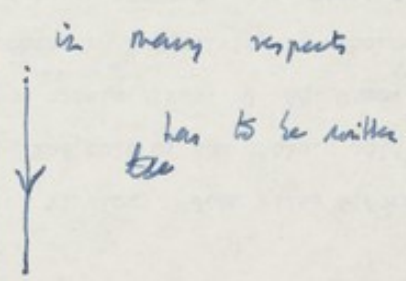 in many respects
has to be written